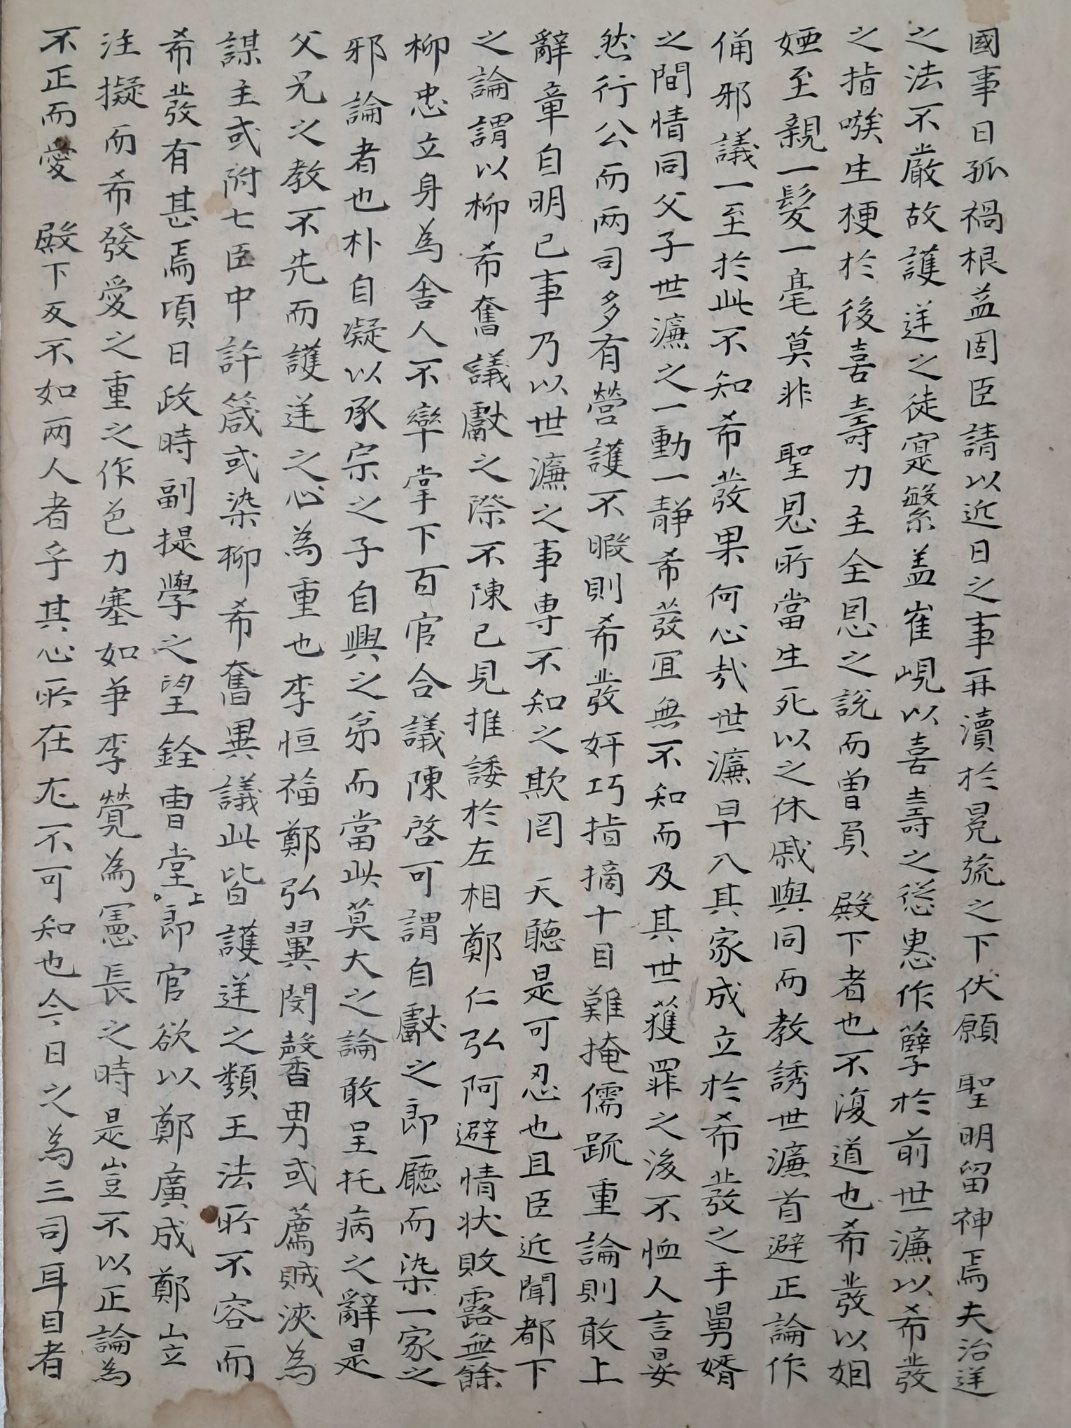 國事日孤禍根益固臣請以近日之事再瀆於冕旒之下伏願 聖明留神焉夫治逆
之法不嚴故護逆之徒寔繁盖崔晛以喜壽之慫恿作孽於前世濂以希發
之指嗾生梗於後喜壽力主全恩之說而曾負 殿下者也不復道也希發以姻
婭至親一髮一毫莫非 聖恩所當生死以之休戚與同而教誘世濂首避正論作
俑邪議一至於此不知希發果何心㢤世濂早入其家成立於希發之手舅婿
之間情同父子世濂之一動一靜希發冝無不知而及其世獲罪之後不恤人言晏
然行公而兩司多有營護不暇則希發奸巧指摘十目難掩儒䟽重論則敢上
辭章自明已事乃以世濂之事專不知之欺罔 天聽是可忍也且臣近聞都下
之論謂以柳希奮議獻之際不陳已見推諉於左相鄭仁弘阿避情狀敗露無餘
柳忠立身為舍人不牽掌下百官合議陳啓可謂自獻之郎廳而染一家之
邪論者也朴自凝以承宗之子自興之弟而當此莫大之論敢呈托病之辭是
父兄之教不先而護逆之心為重也李恒福鄭弘翼閔馨男或薦賊浹為
謀主或附七臣中許箴或染柳希奮異議此皆護逆之類王法所不容而
希發有甚焉頃日政時副提學之望銓曹堂上郎官欲以鄭廣成鄭岦
注擬而希發愛之重之作色力塞如爭李覮為憲長之時是豈不以正論為
不正而愛 殿下反不如兩人者乎其心所在尤不可知也今日之為三司耳目者